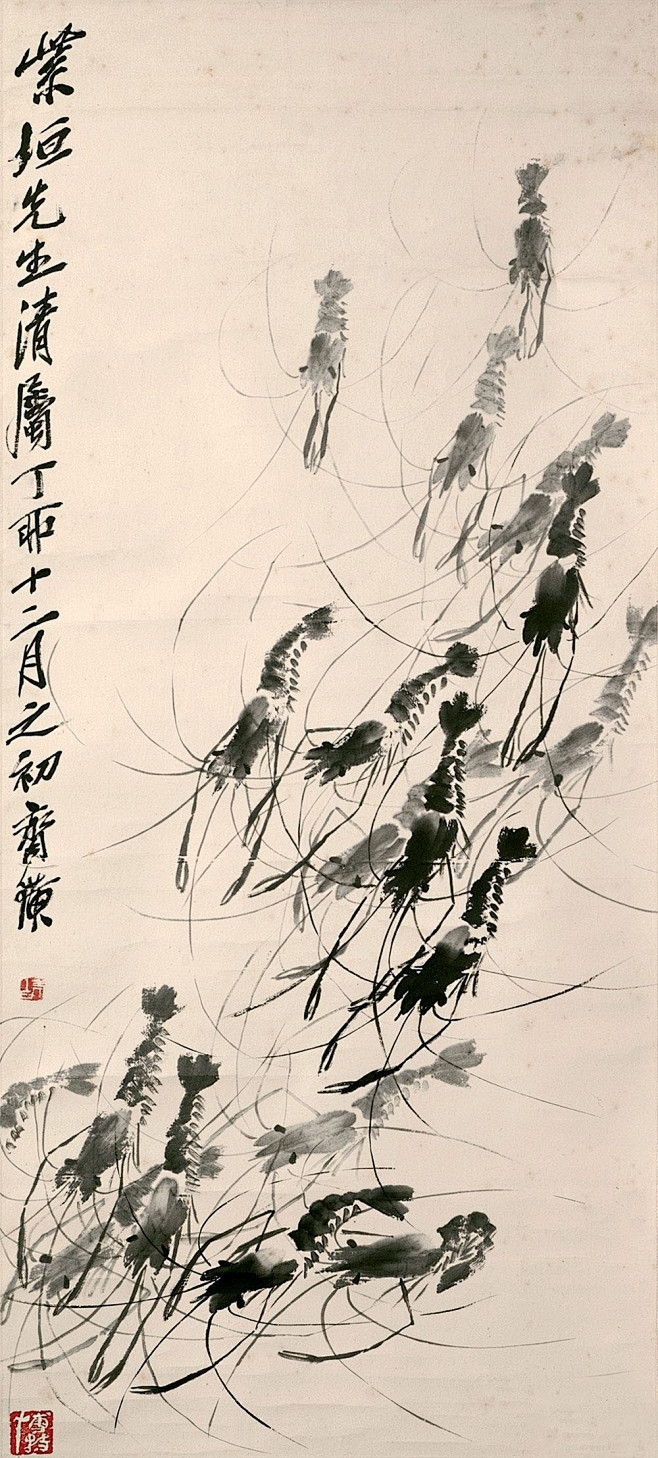 紫垣先生清屬丁卯十二月之初齊璜